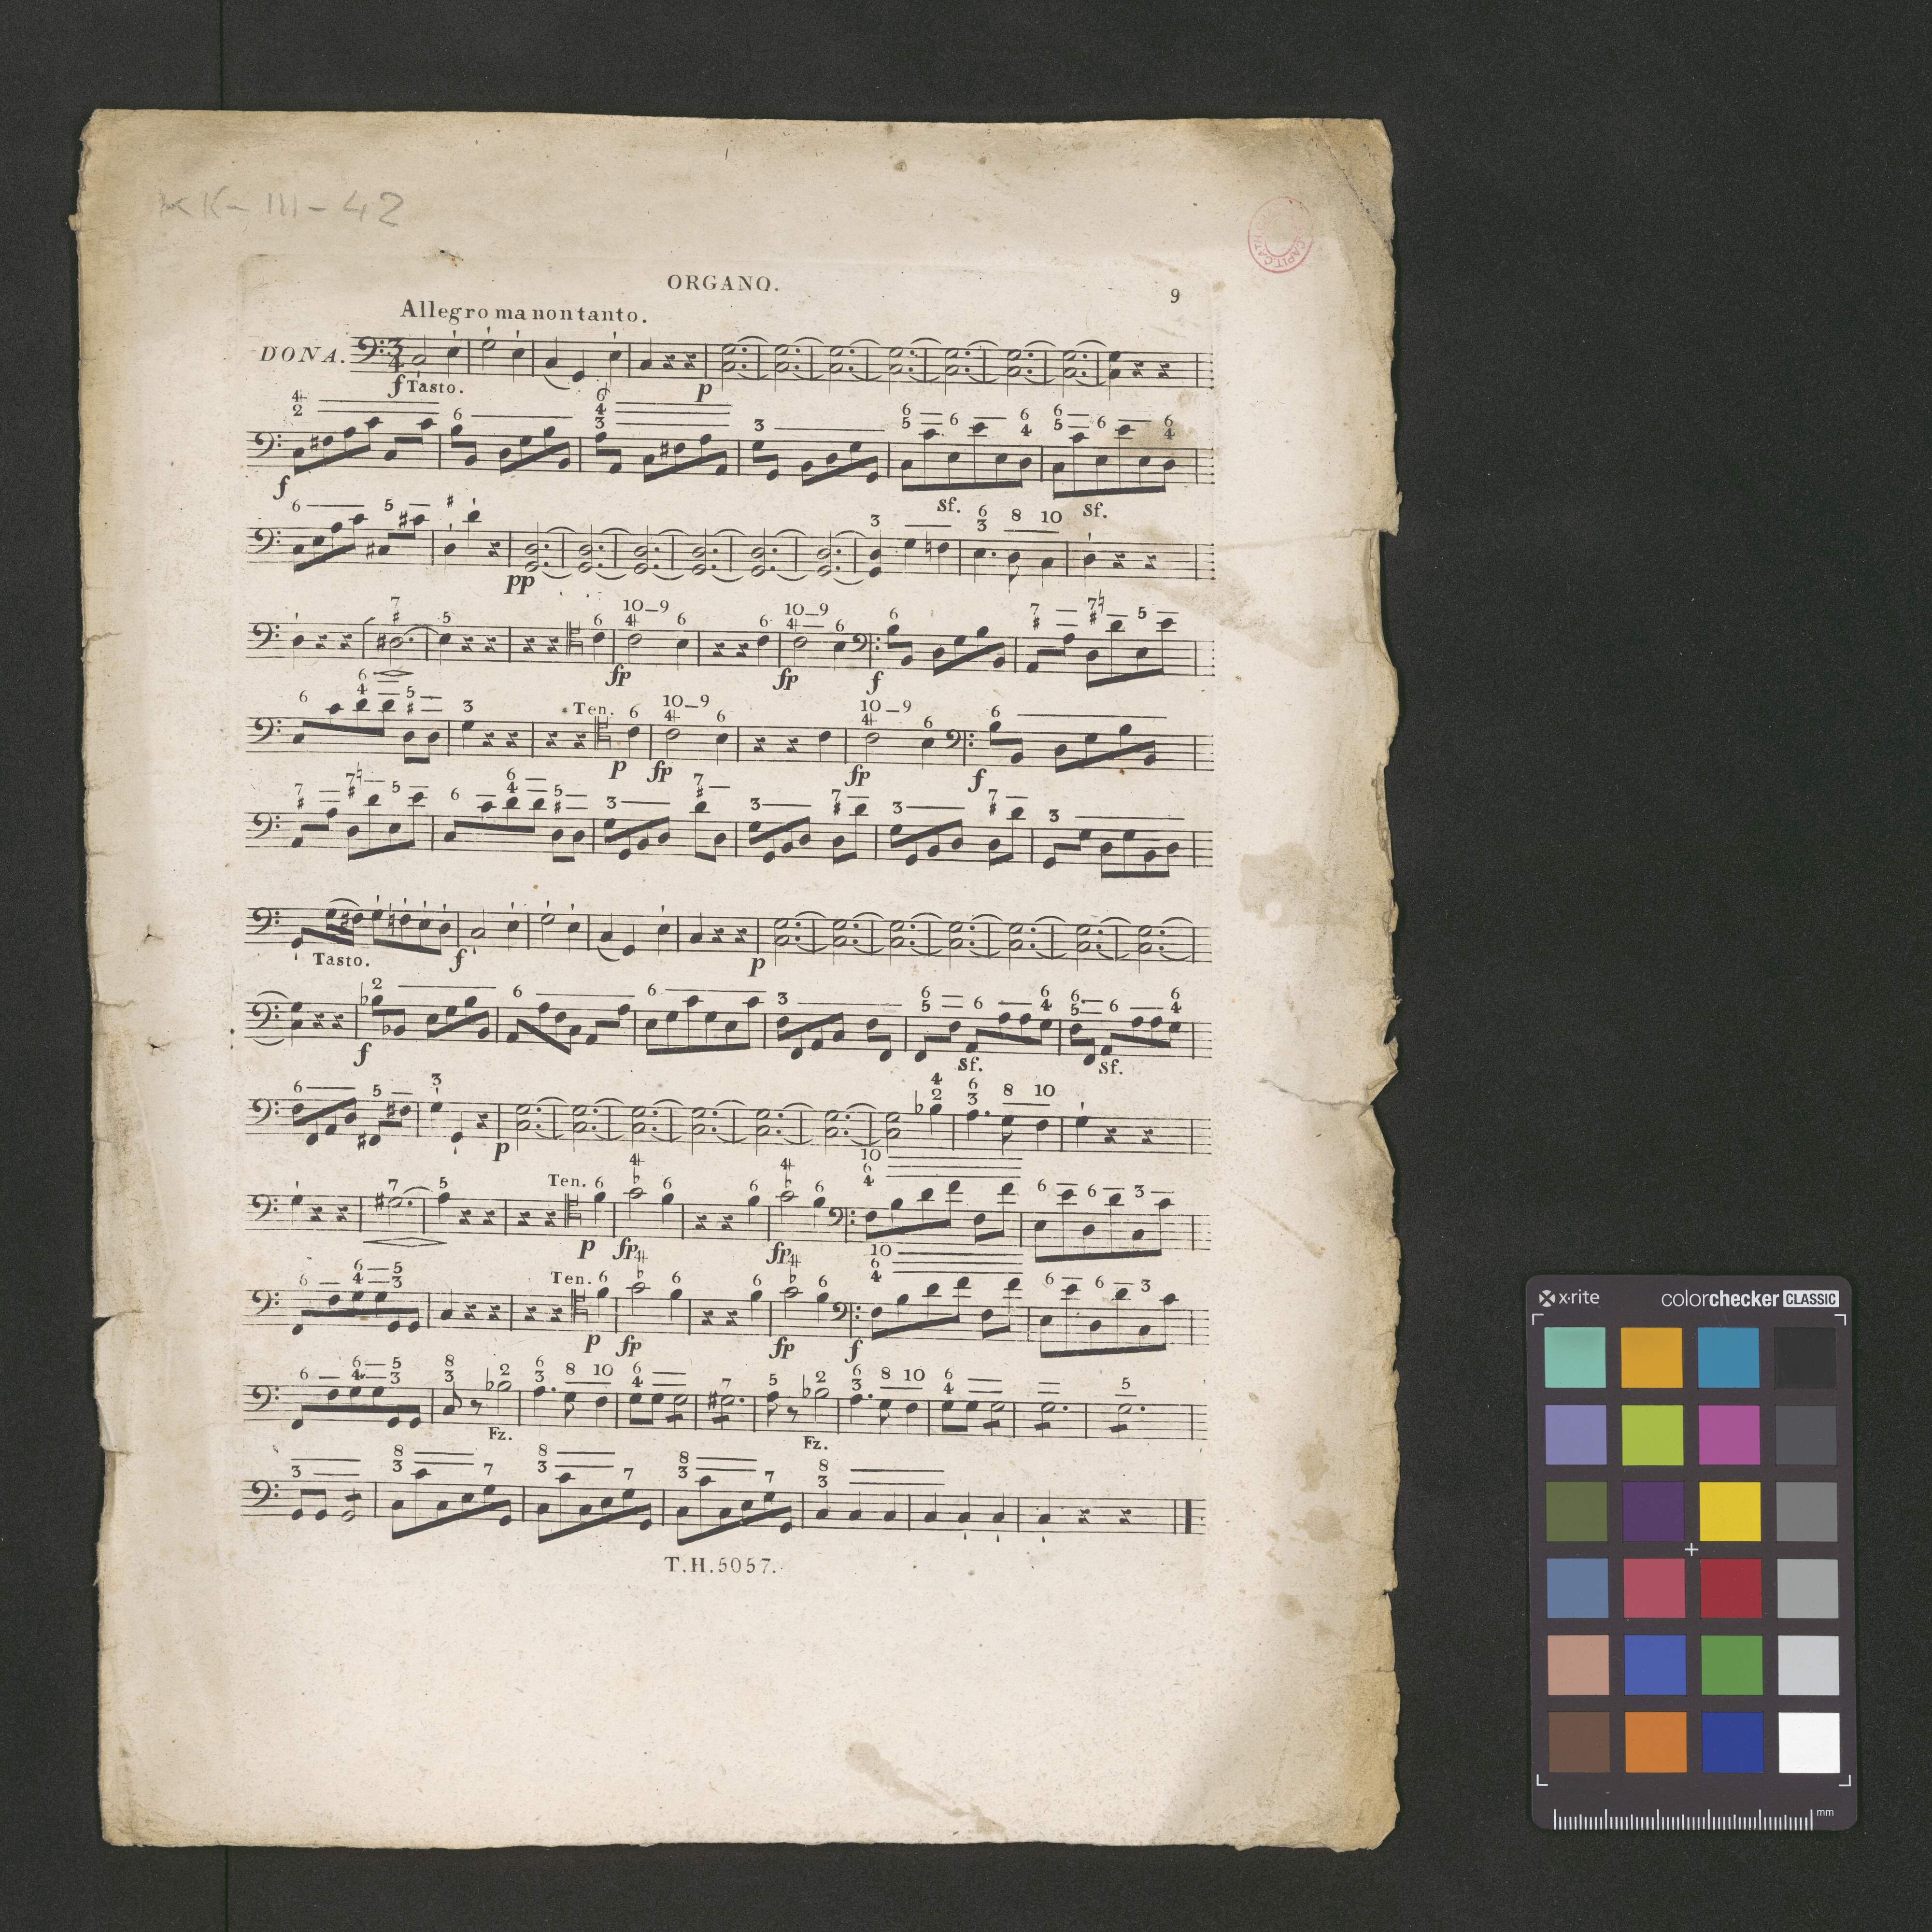 KK-III-42
CAPIT. CATH
ORGANO.
9
Allegro ma non tanto.
DONA.
f Tasto.
p
f
Sf.
Sf.
pp
fp
fp
f
Ten.
p
fp
fp
f
Tasto.
f
p
f
Sf.
Sf.
p
Ten.
p
fp
fp
Ten.
p
fp
fp
f
Fz.
Fz.
T.H.5057.
x·rite
colorchecker CLASSIC
mm